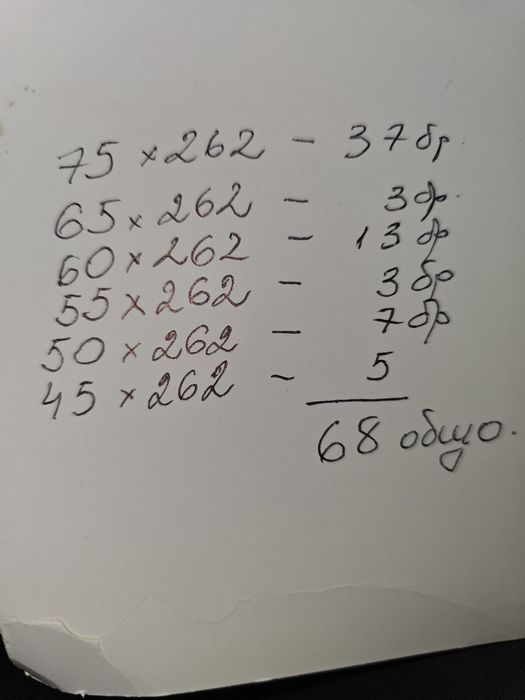 75 x 262 – 37 бр.
65 x 262 – 3 бр.
60 x 262 – 13 бр
55 x 262 – 3 бр
50 x 262 – 7 бр
45 x 262 – 5
68 общо.